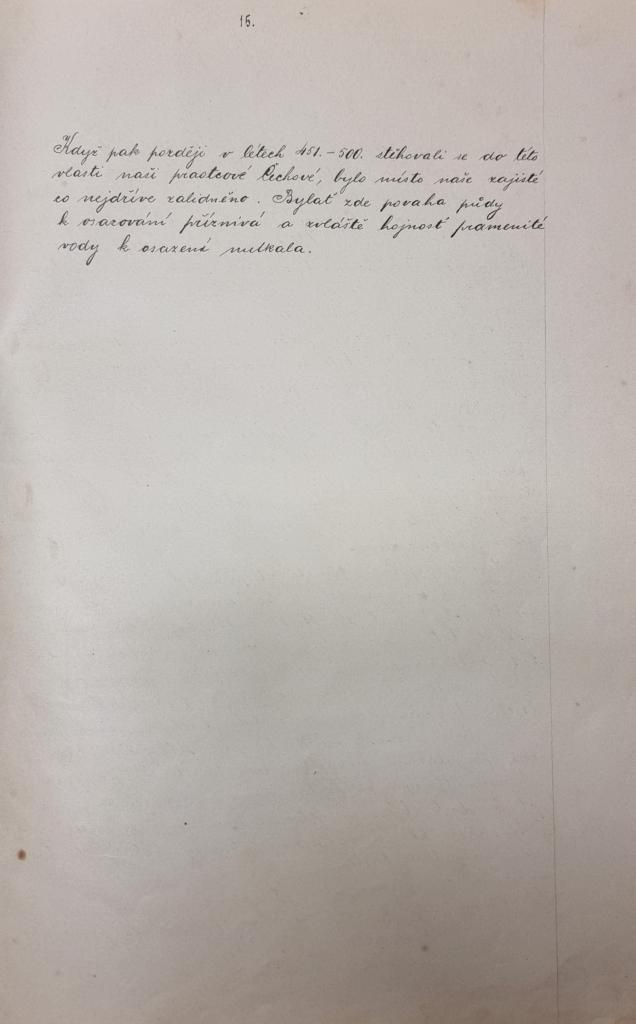 15.
Když pak později v létech 451.-500. stěhovali se do této
vlasti naší praotcové Čechové, bylo místo naše zajisté
co nejdříve zalidněno. Bylať zde povaha půdy
k osazování příznivá a zvláště hojnosť pramenité
vody k osazení nutkala.